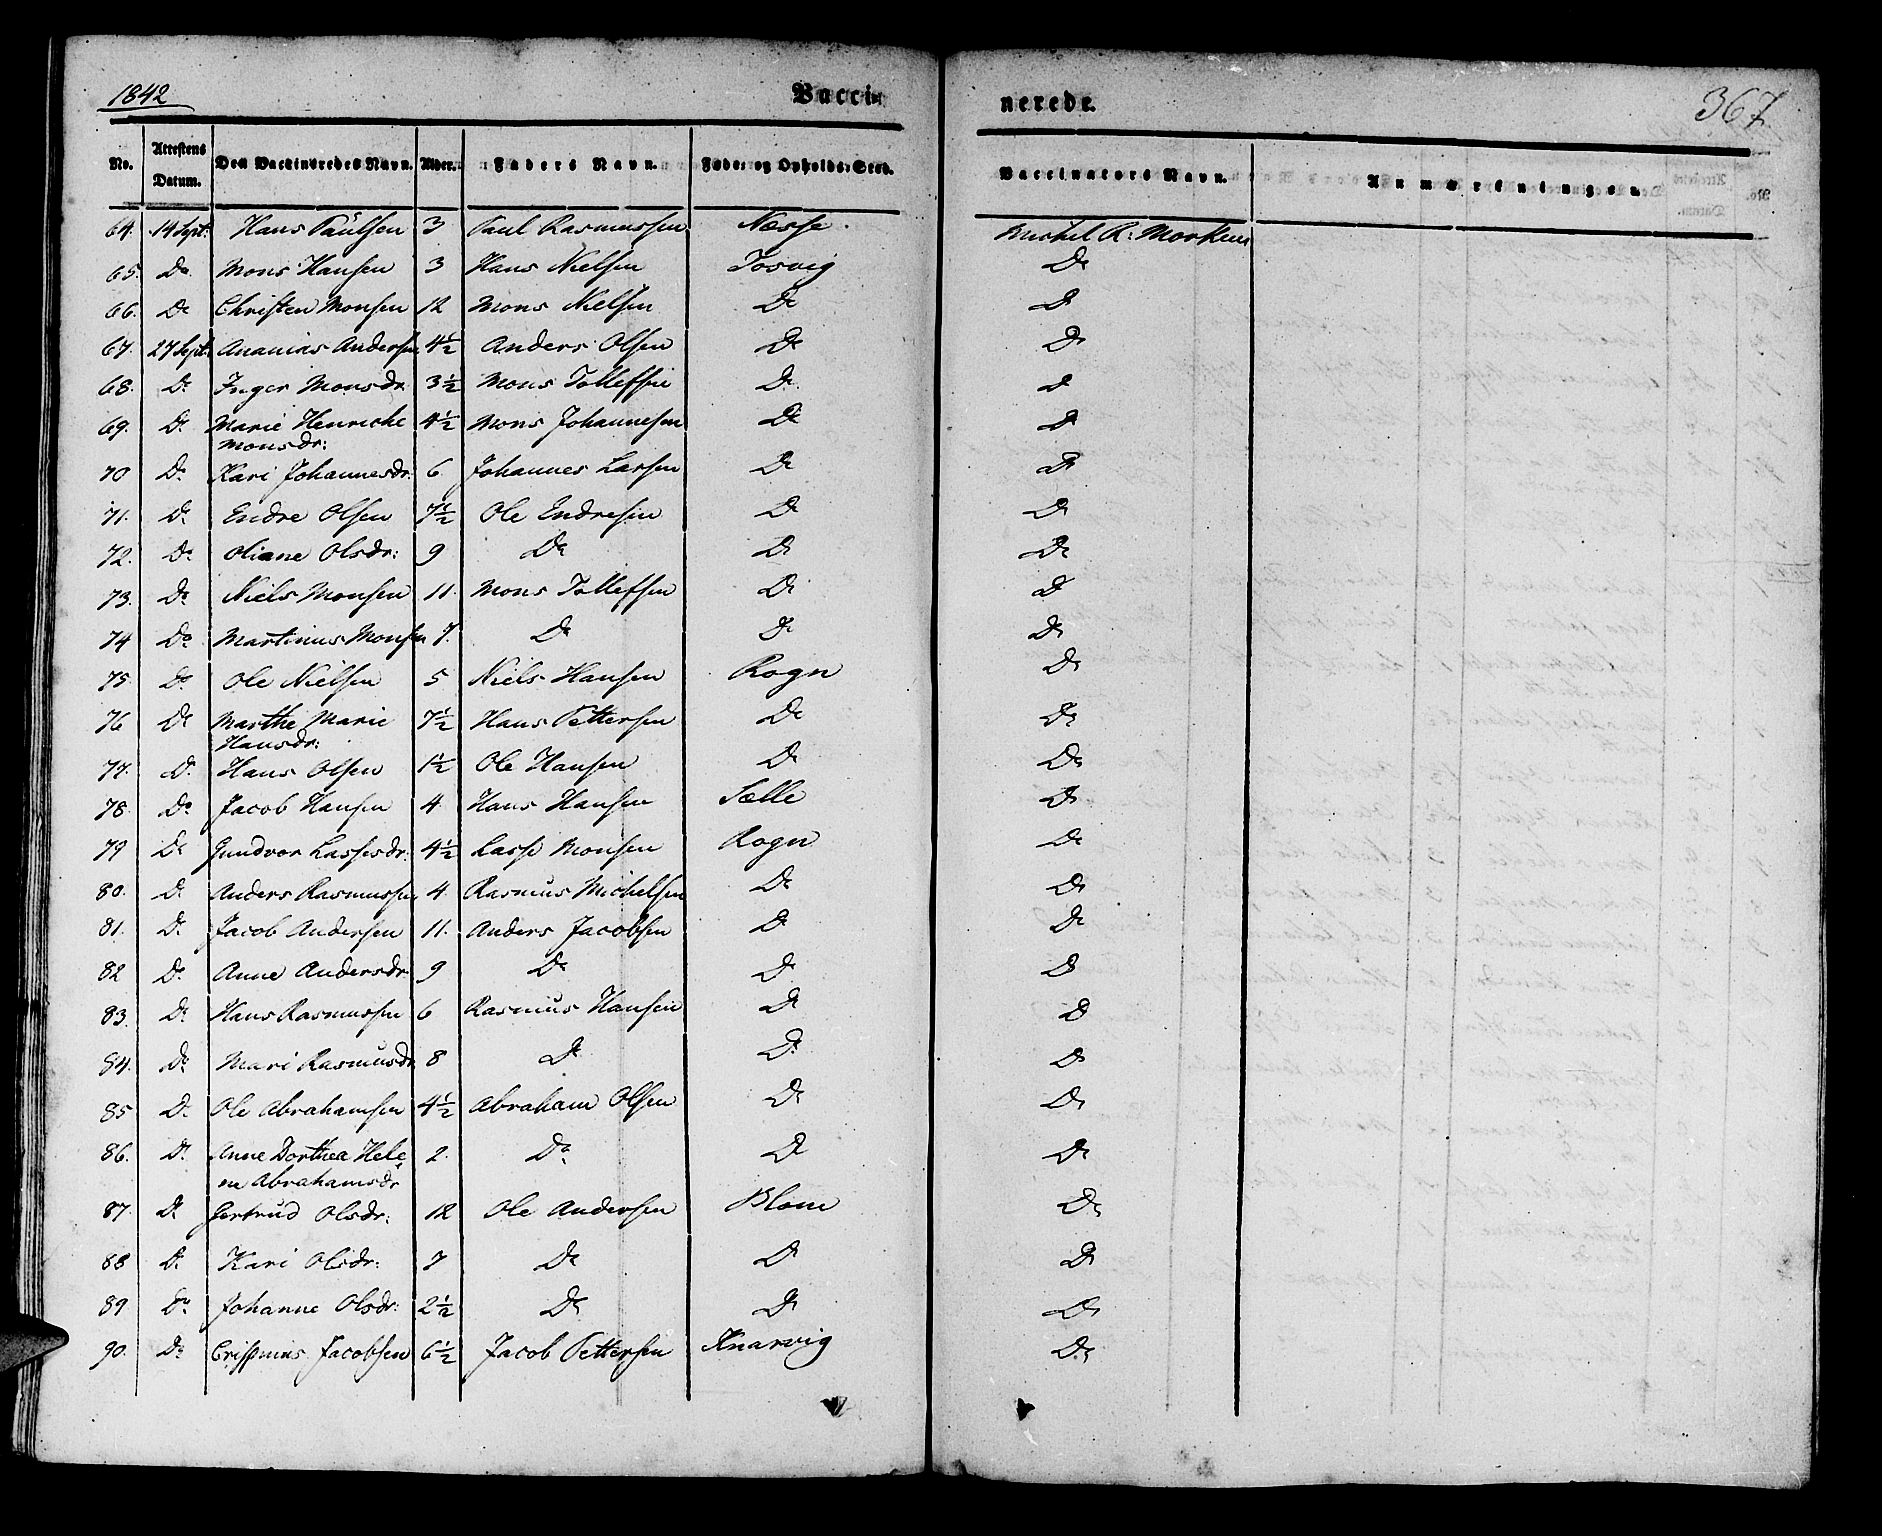 1842 Vacci- nerede. 367
No. Attestens Datum. Den Vaccineredes Navn. Alder. Faders Navn. Føde- og Opholds-Sted. Vaccinators Navn. Anmærkninger.
64. 14 Sept: Hans Paulsen 3 Paul Rasmussen Næsse. Michel R: Morken
65. Do Mons Hansen 3 Hans Nielsen Tosvig Do
66. Do Christen Monsen 12 Mons Nielsen Do Do
67. 27 Sept: Ananias Andersen 4½ Anders Olsen Do Do
68. Do Inger Monsdr. 3½ Mons Tollefsen Do Do
69. Do Marie Henricke 4½ Mons Johannesen Do Do
Monsdr:
70 Do Kari Johannesdr: 6 Johannes Larsen Do Do
71. Do Endre Olsen 7½ Ole Endresen Do Do
72. Do Oliane Olsdr: 9 Do Do Do
73. Do Niels Monsen 11. Mons Tollefsen Do Do
74 Do Martinus Monsen 7. Do Do Do
75. Do Ole Nielsen 5 Niels Hansen Rogn Do
76 Do Marthe Marie 7½ Hans Pettersen Do Do
Hansdr:
77. Do Hans Olsen 1½ Ole Hansen Do Do
78. Do Jacob Hansen 4 Hans Hansen Sælle Do
79 Do Gundvor Lassesdr. 4½ Lasse Monsen Rogn Do
80. Do Anders Rasmussen 4 Rasmus Michelsen Do Do
81. Do Jacob Andersen 11. Anders Jacobsen Do Do
82 Do Anne Andersdr. 9 Do Do Do
83. Do Hans Rasmussen 6 Rasmus Hansen Do Do
84. Do Mari Rasmusdr. 8 Do Do Do
85 Do Ole Abrahamsen 4½ Abraham Olsen Do Do
86. Do Anne Dorthea Hele 2. Do Do Do
ne Abrahamsdr
87. Do Gertrud Olsdr: 12 Ole Andersen Blom Do
88 Do Kari Olsdr: 7 Do Do Do
89 Do Johanne Olsdr: 2½ Do Do Do
90. Do Crispinus Jacobsen 6½ Jacob Pettersen Knarvig Do